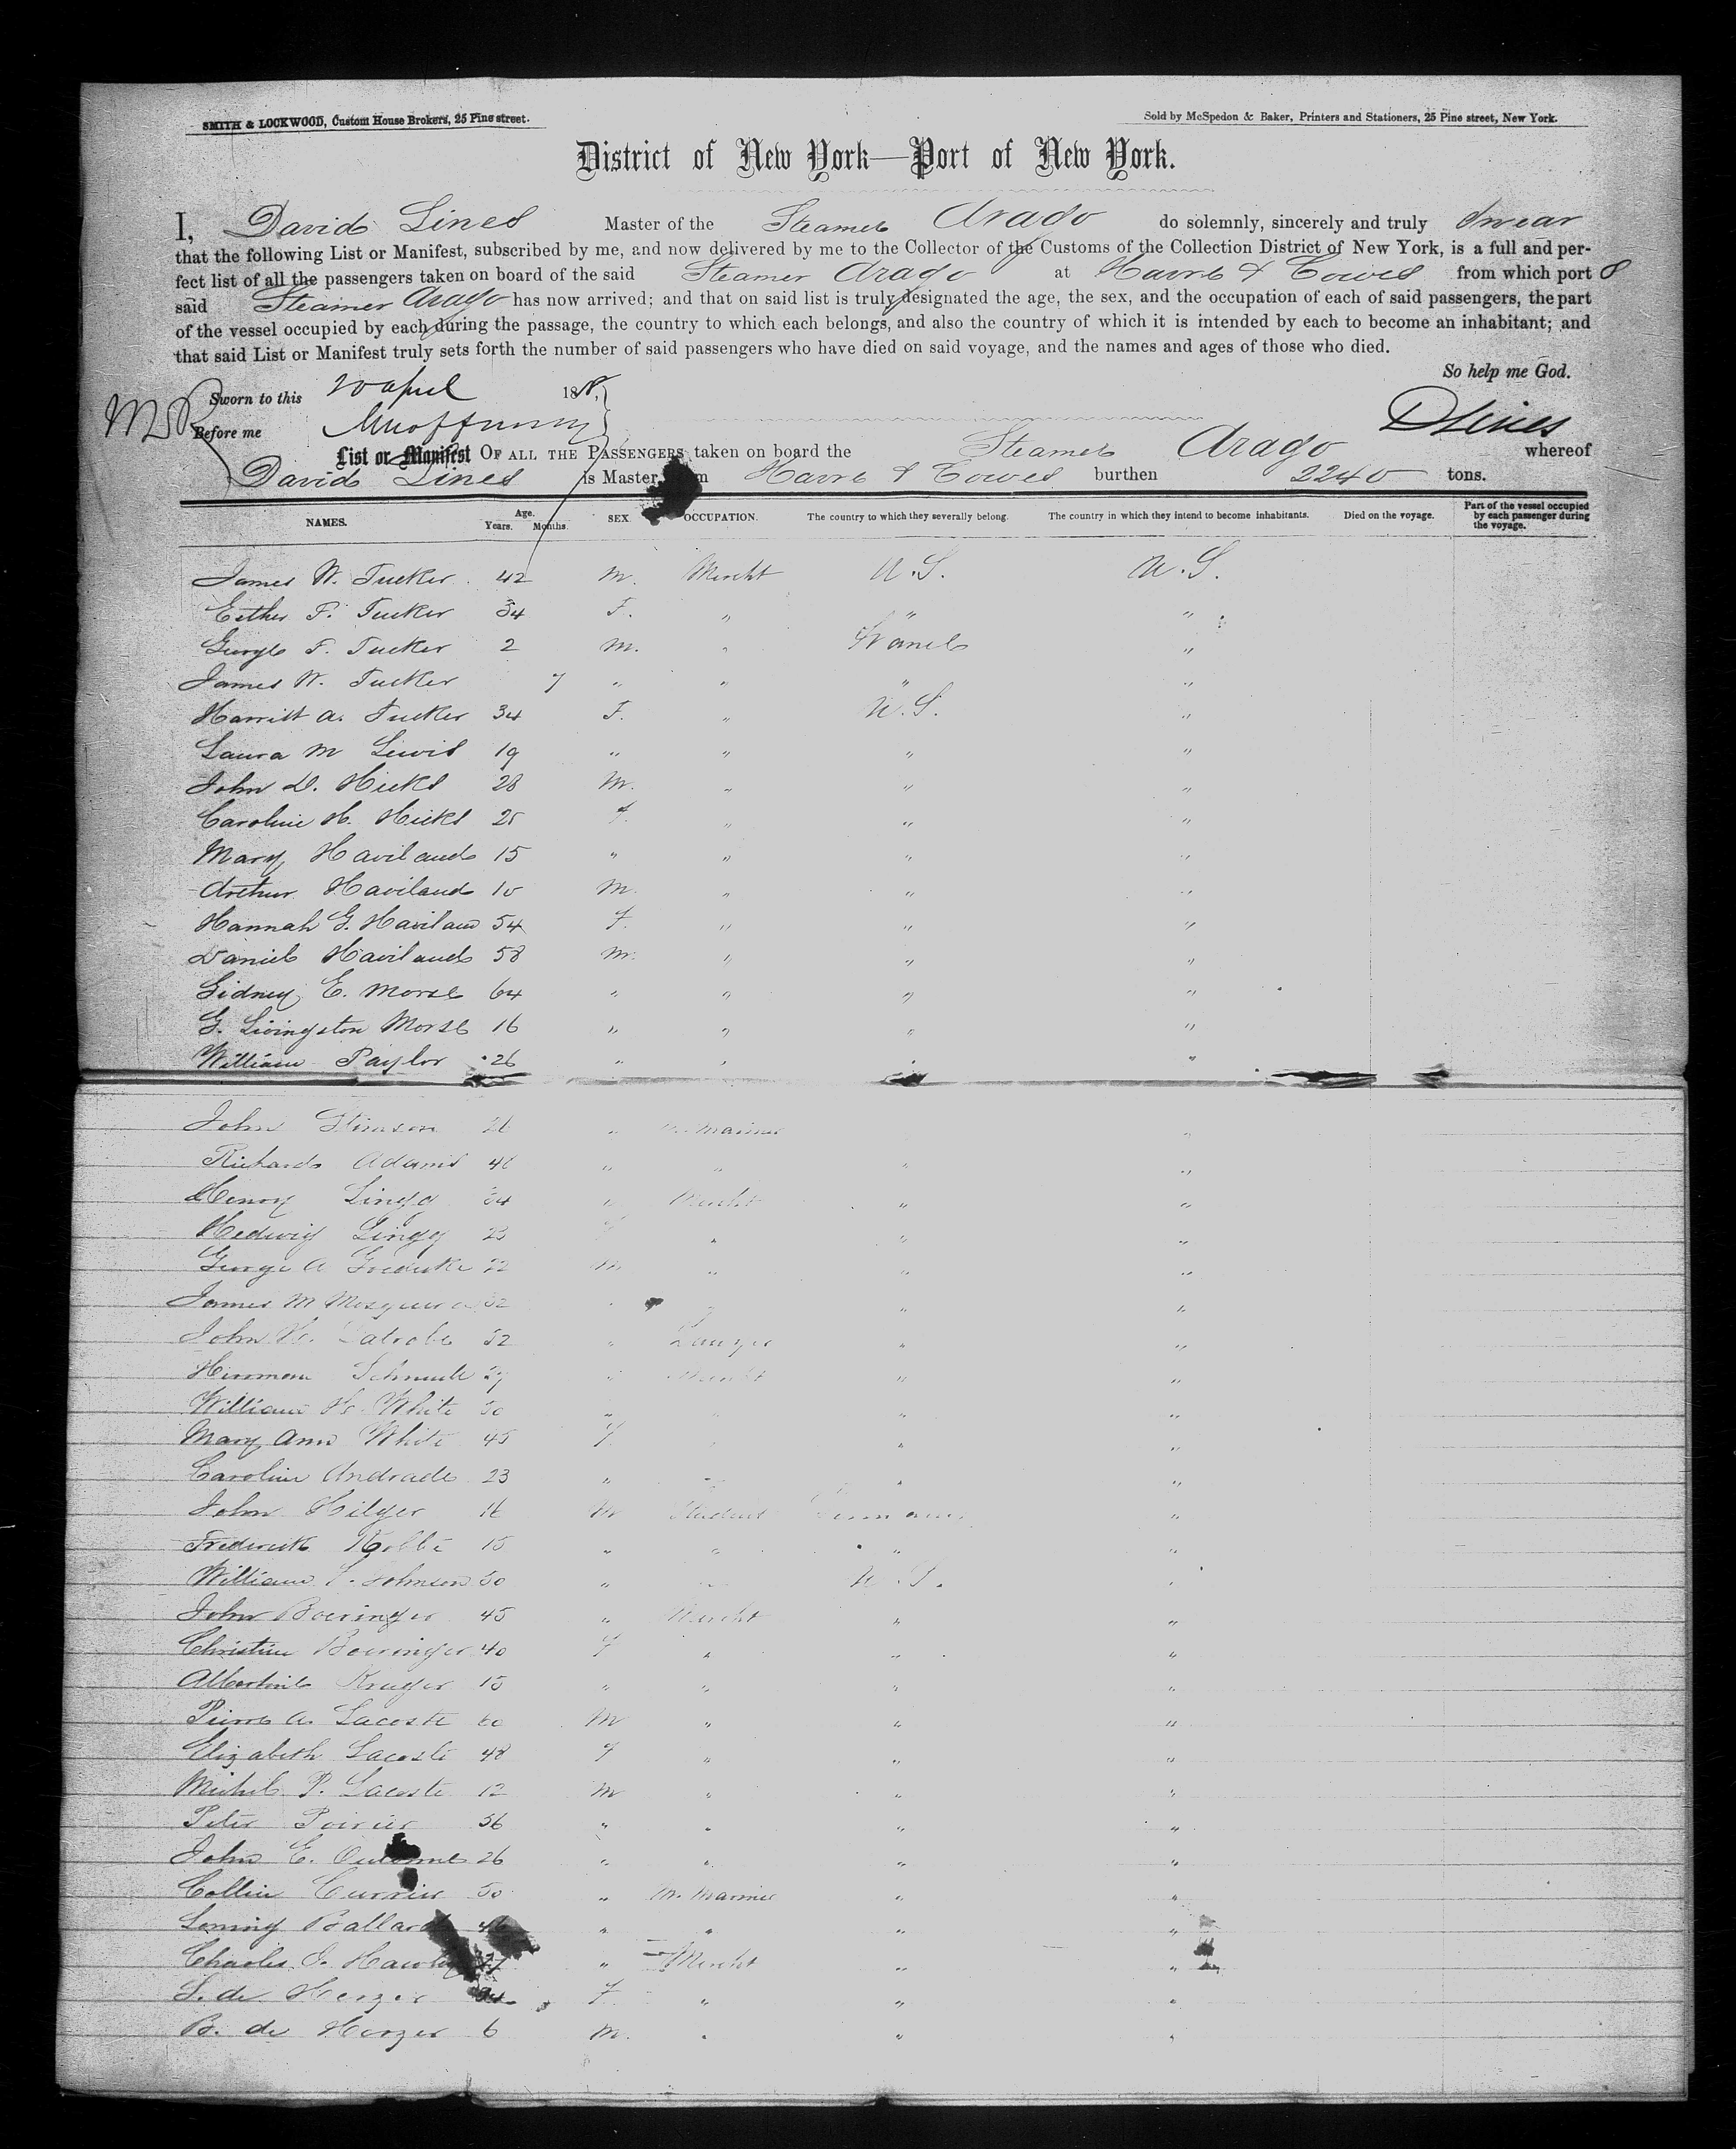 SMITH & LOCKWOOD, Custom House Brokers, 25 Pine street.
Sold by McSpedon & Baker, Printers and Stationers, 25 Pine street, New York.
District of New York—Port of New York.
I, David Lines Master of the Steamer Arago do solemnly, sincerely and truly swear
that the following List or Manifest, subscribed by me, and now delivered by me to the Collector of the Customs of the Collection District of New York, is a full and per-
fect list of all the passengers taken on board of the said Steamer Arago at Havre & Cowes from which port
said Steamer Arago has now arrived; and that on said list is truly designated the age, the sex, and the occupation of each of said passengers, the part
of the vessel occupied by each during the passage, the country to which each belongs, and also the country of which it is intended by each to become an inhabitant; and
that said List or Manifest truly sets forth the number of said passengers who have died on said voyage, and the names and ages of those who died.
So help me God.
Sworn to this 20 April 18
Before me
D Lines
List or Manifest OF ALL THE PASSENGERS taken on board the Steamer Arago whereof
David Lines is Master, Havre & Cowes burthen 2240 tons.
NAMES. Age. Years. Months. SEX. OCCUPATION. The country to which they severally belong. The country in which they intend to become inhabitants. Died on the voyage. Part of the vessel occupied by each passenger during the voyage.
James W. Tucker 42 M. Mercht U.S. U.S.
Esther F. Tucker 34 F. " " "
George F. Tucker 2 M. " "
James W. Tucker 7 " " " "
Harriett A. Tucker 34 F. " U.S. "
Laura M Lewis 19 " " " "
John D. Hicks 28 M. " " "
Caroline H. Hicks 25 F. " " "
Mary Haviland 15 " " " "
Arthur Haviland 10 M. " " "
Hannah G. Havilan 54 F. " " "
Daniel Haviland 58 M. " " "
Sidney E. Morse 64 " " " "
G. Livingston Morse 16 " " " "
William Paylor 26 " " " "
John Stimson 26 " M. Mariner "
Richard Adams 48 " " " "
Henry Lingg 34 " Mercht " "
Hedwig Lingg 23 F " " "
George A 22 M " " "
James M 32 " " "
John H. Latrobe 32 " Lawyer " "
Herrman 29 " Mercht " "
William H. White 50 " " " "
Mary Ann White 45 F. " " "
Caroline Andrade 23 " " " "
John Hilger 16 M Student Germany "
Frederick Kolbe 15 " " " "
William Johnson 30 " " U.S. "
John Boeringer 45 " Mercht " "
Christine Boeringer 40 F " " "
Albertine Kruger 15 " " " "
Pierre A. Lacoste 60 M " " "
Elizabeth Lacoste 48 F " " "
Michel P. Lacoste 12 M " " "
Peter Poirier 36 " " " "
John E. 26 " " " "
Collin Currier 50 " M. Mariner " "
Loring Ballard 46 " " " "
Charles J. " Mercht " "
S. de Herzer 24 F. " " "
B. de Herzer 6 M. " " "